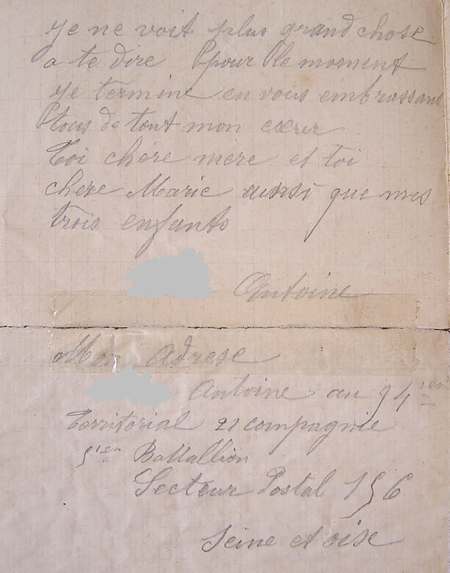 je ne voit plus grand chose
a te dire pour le moment
je termine en vous embrassant
tous de tout mon cœur
Toi chère mere et toi
chere Marie aussi que mes
trois enfants
Antoine
Mon adrese
Antoine au 94
Territorial 21 compagnie
5ien Battallion
Secteur Postal 156
Seine et oise